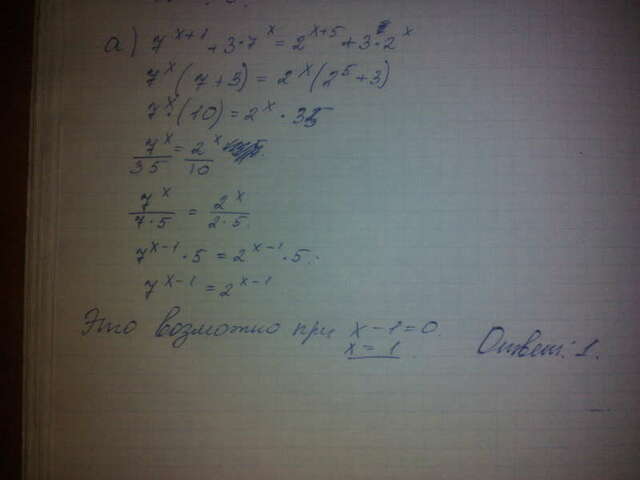 а) 7^(x+1) + 3·7^x = 2^(x+5) + 3·2^x
7^x (7+3) = 2^x (2^5+3)
7^x·(10) = 2^x · 35
7^x/35 = 2^x/10
7^x/(7·5) = 2^x/(2·5)
7^(x-1) · 5 = 2^(x-1) · 5.
7^(x-1) = 2^(x-1)
Это возможно при x-1=0.
x = 1 Ответ: 1.